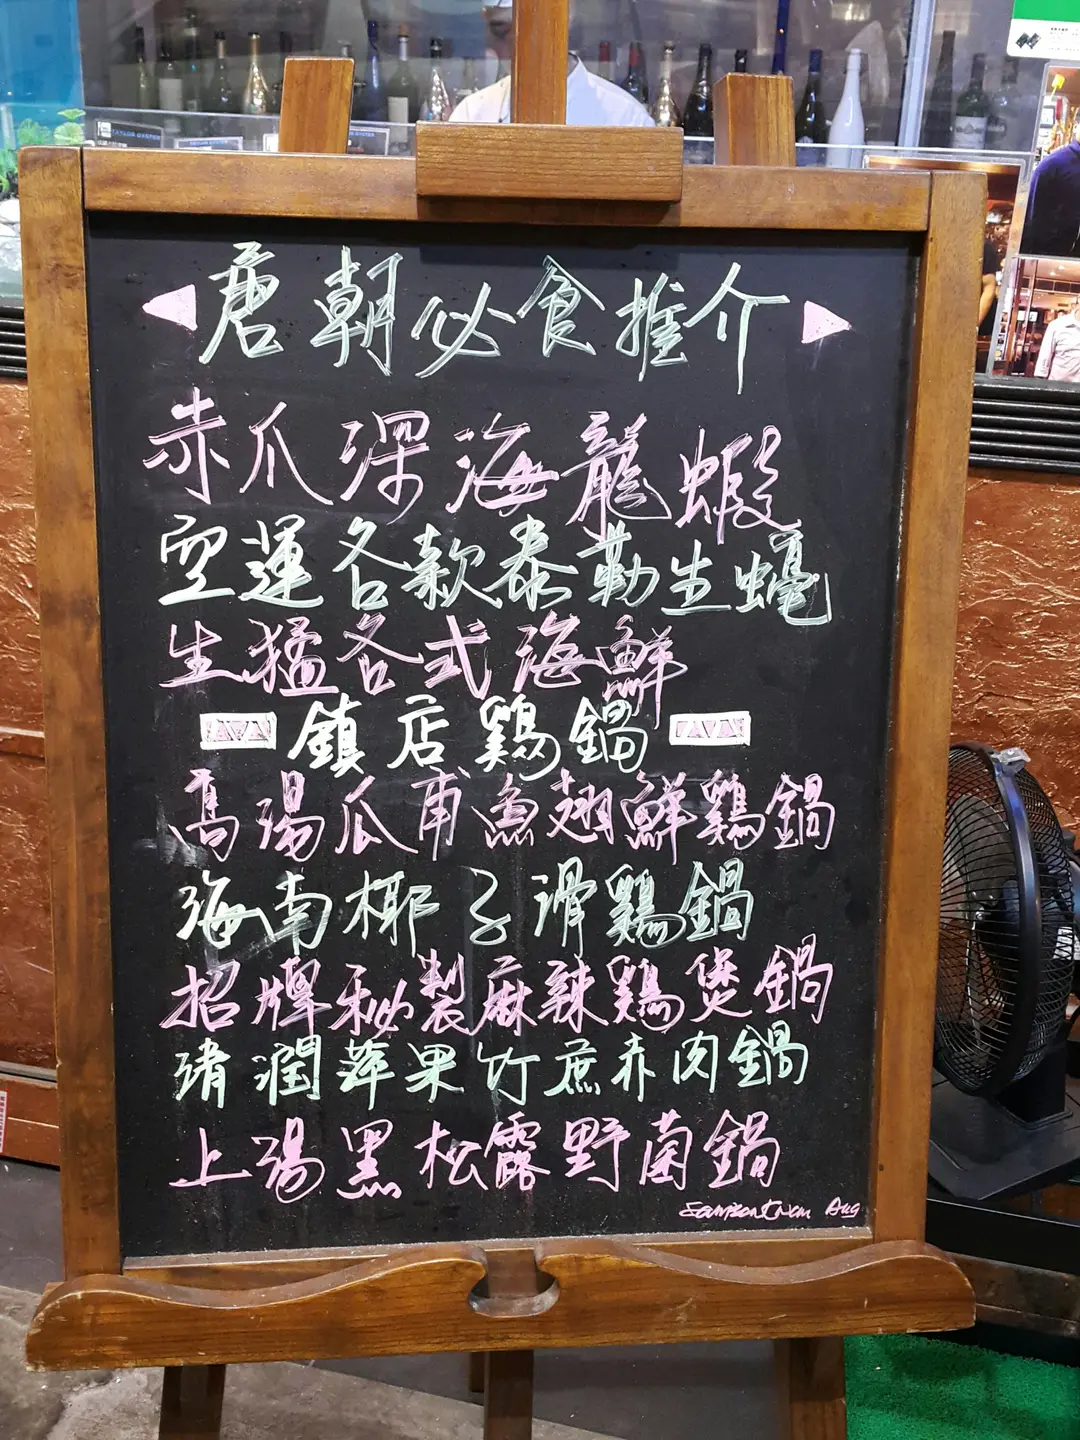 TAYLOR OYSTER
唐朝必食推介
赤爪深海龍蝦
空運各款泰勒生蠔
生猛各式海鮮
鎮店鷄鍋
高湯瓜甫魚翅鮮鷄鍋
海南椰子滑鷄鍋
招牌秘製麻辣鷄煲鍋
清潤苹果竹蔗赤肉鍋
上湯黑松露野菌鍋
Aug